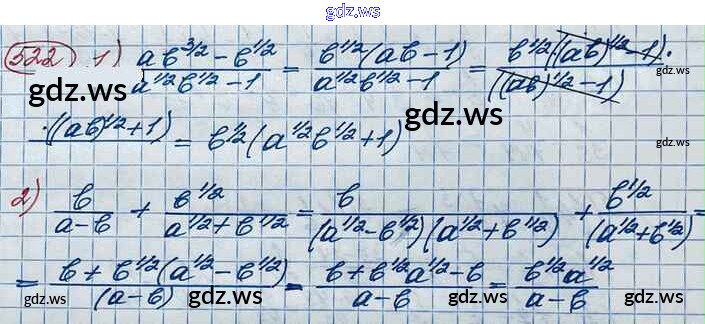 gdz.ws
522) 1) (ab^{3/2} - b^{1/2})/(a^{1/2}b^{1/2} - 1) = (b^{1/2}(ab - 1))/(a^{1/2}b^{1/2} - 1) = (b^{1/2}((ab)^{1/2} - 1)·)/((ab)^{1/2} - 1)
gdz.ws gdz.ws gdz.ws
·((ab)^{1/2} + 1) = b^{1/2}(a^{1/2}b^{1/2} + 1)
gdz.ws gdz.ws
2) b/(a - b) + b^{1/2}/(a^{1/2} + b^{1/2}) = b/((a^{1/2} - b^{1/2})(a^{1/2} + b^{1/2})) + b^{1/2}/(a^{1/2} + b^{1/2}) =
= (b + b^{1/2}(a^{1/2} - b^{1/2}))/(a - b) = (b + b^{1/2}a^{1/2} - b)/(a - b) = (b^{1/2}a^{1/2})/(a - b)
gdz.ws gdz.ws gdz.ws gdz.ws